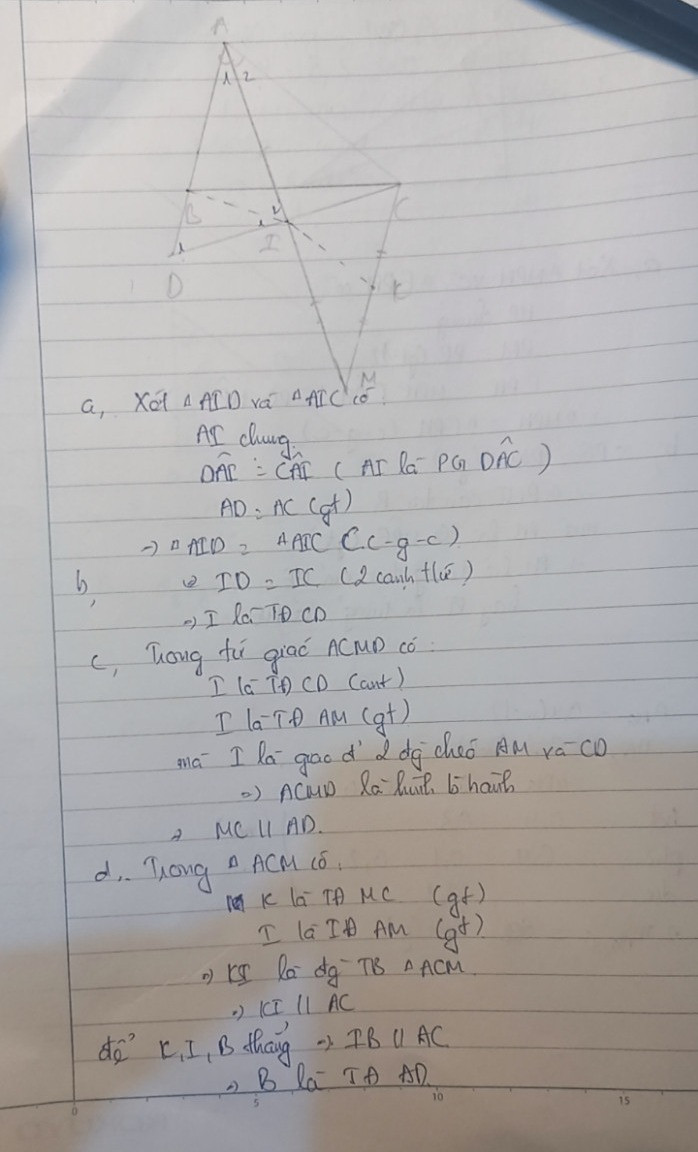 A
1 2
B
C
1 2
I
1
D
K
M
a, Xét △AID và △AIC có:
AI chung.
DÂI = CÂI ( AI là PG DÂC )
AD = AC (gt)
→ △AID = △AIC (c-g-c)
b, => ID = IC (2 cạnh t/ứ)
=> I là TĐ CD
c, Trong tứ giác ACMD có:
I là TĐ CD (cmt)
I là TĐ AM (gt)
mà I là giao đ' 2 đg chéo AM và CD
=> ACMD là hình b hành
=> MC || AD.
d, Trong △ ACM có:
K là TĐ MC (gt)
I là TĐ AM (gt)
=> KI là đg TB △ACM
=> KI || AC
để K, I, B thẳng → IB || AC
=> B là TĐ AD
0 5 10 15